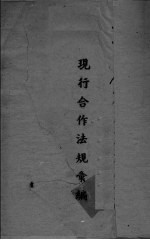 現行合作法規彙編